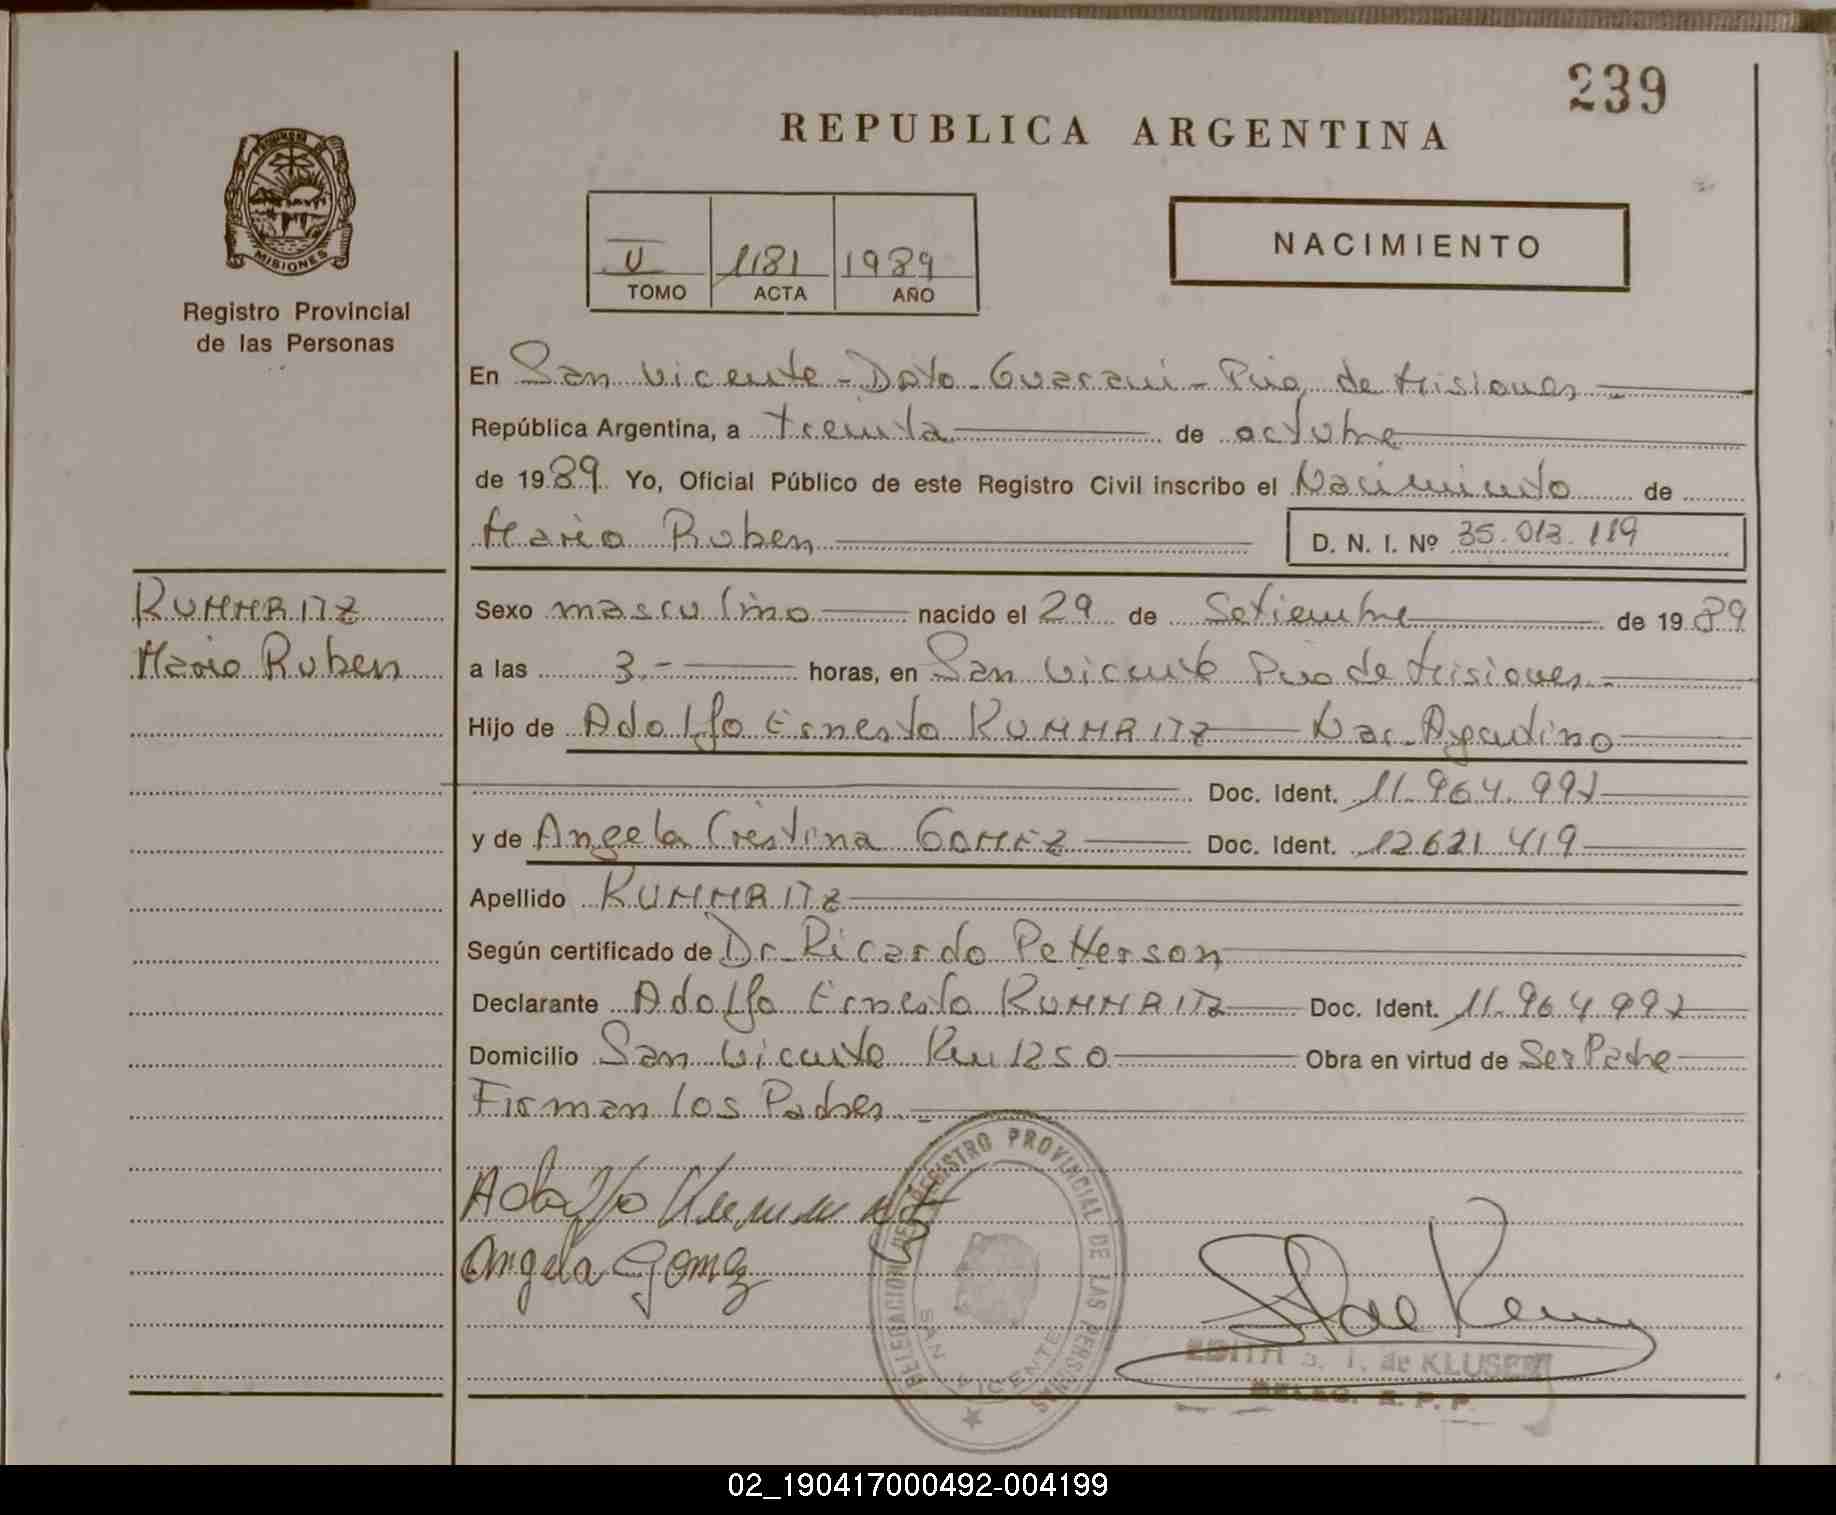 239
REPUBLICA ARGENTINA
MISIONES
Registro Provincial
de las Personas
V 1181 1989
TOMO ACTA AÑO
NACIMIENTO
En San Vicente - Dpto. Guarani - Pcia de Misiones
República Argentina, a treinta de octubre
de 1989. Yo, Oficial Público de este Registro Civil inscribo el Nacimiento de
Mario Ruben D. N. I. Nº 35.013.119
KUMMRITZ
Mario Ruben
Sexo masculino nacido el 29 de Setiembre de 1989
a las 3.- horas, en San Vicente Pcia de Misiones
Hijo de Adolfo Ernesto KUMMRITZ Nac. Argentino
Doc. Ident. 11.964.992
y de Angela Cristina GOMEZ Doc. Ident. 12.621.419
Apellido KUMMRITZ
Según certificado de Dr. Ricardo Petterson
Declarante Adolfo Ernesto KUMMRITZ Doc. Ident. 11.964.992
Domicilio San Vicente Km 1250 Obra en virtud de Ser Padre
Firman los Padres
Adolfo
Angela Gomez
DELEGACION DEL REGISTRO PROVINCIAL DE LAS PERSONAS
SAN VICENTE
EDITH S. T. de KLUSEN
DELEG. R. P. P.
02_190417000492-004199